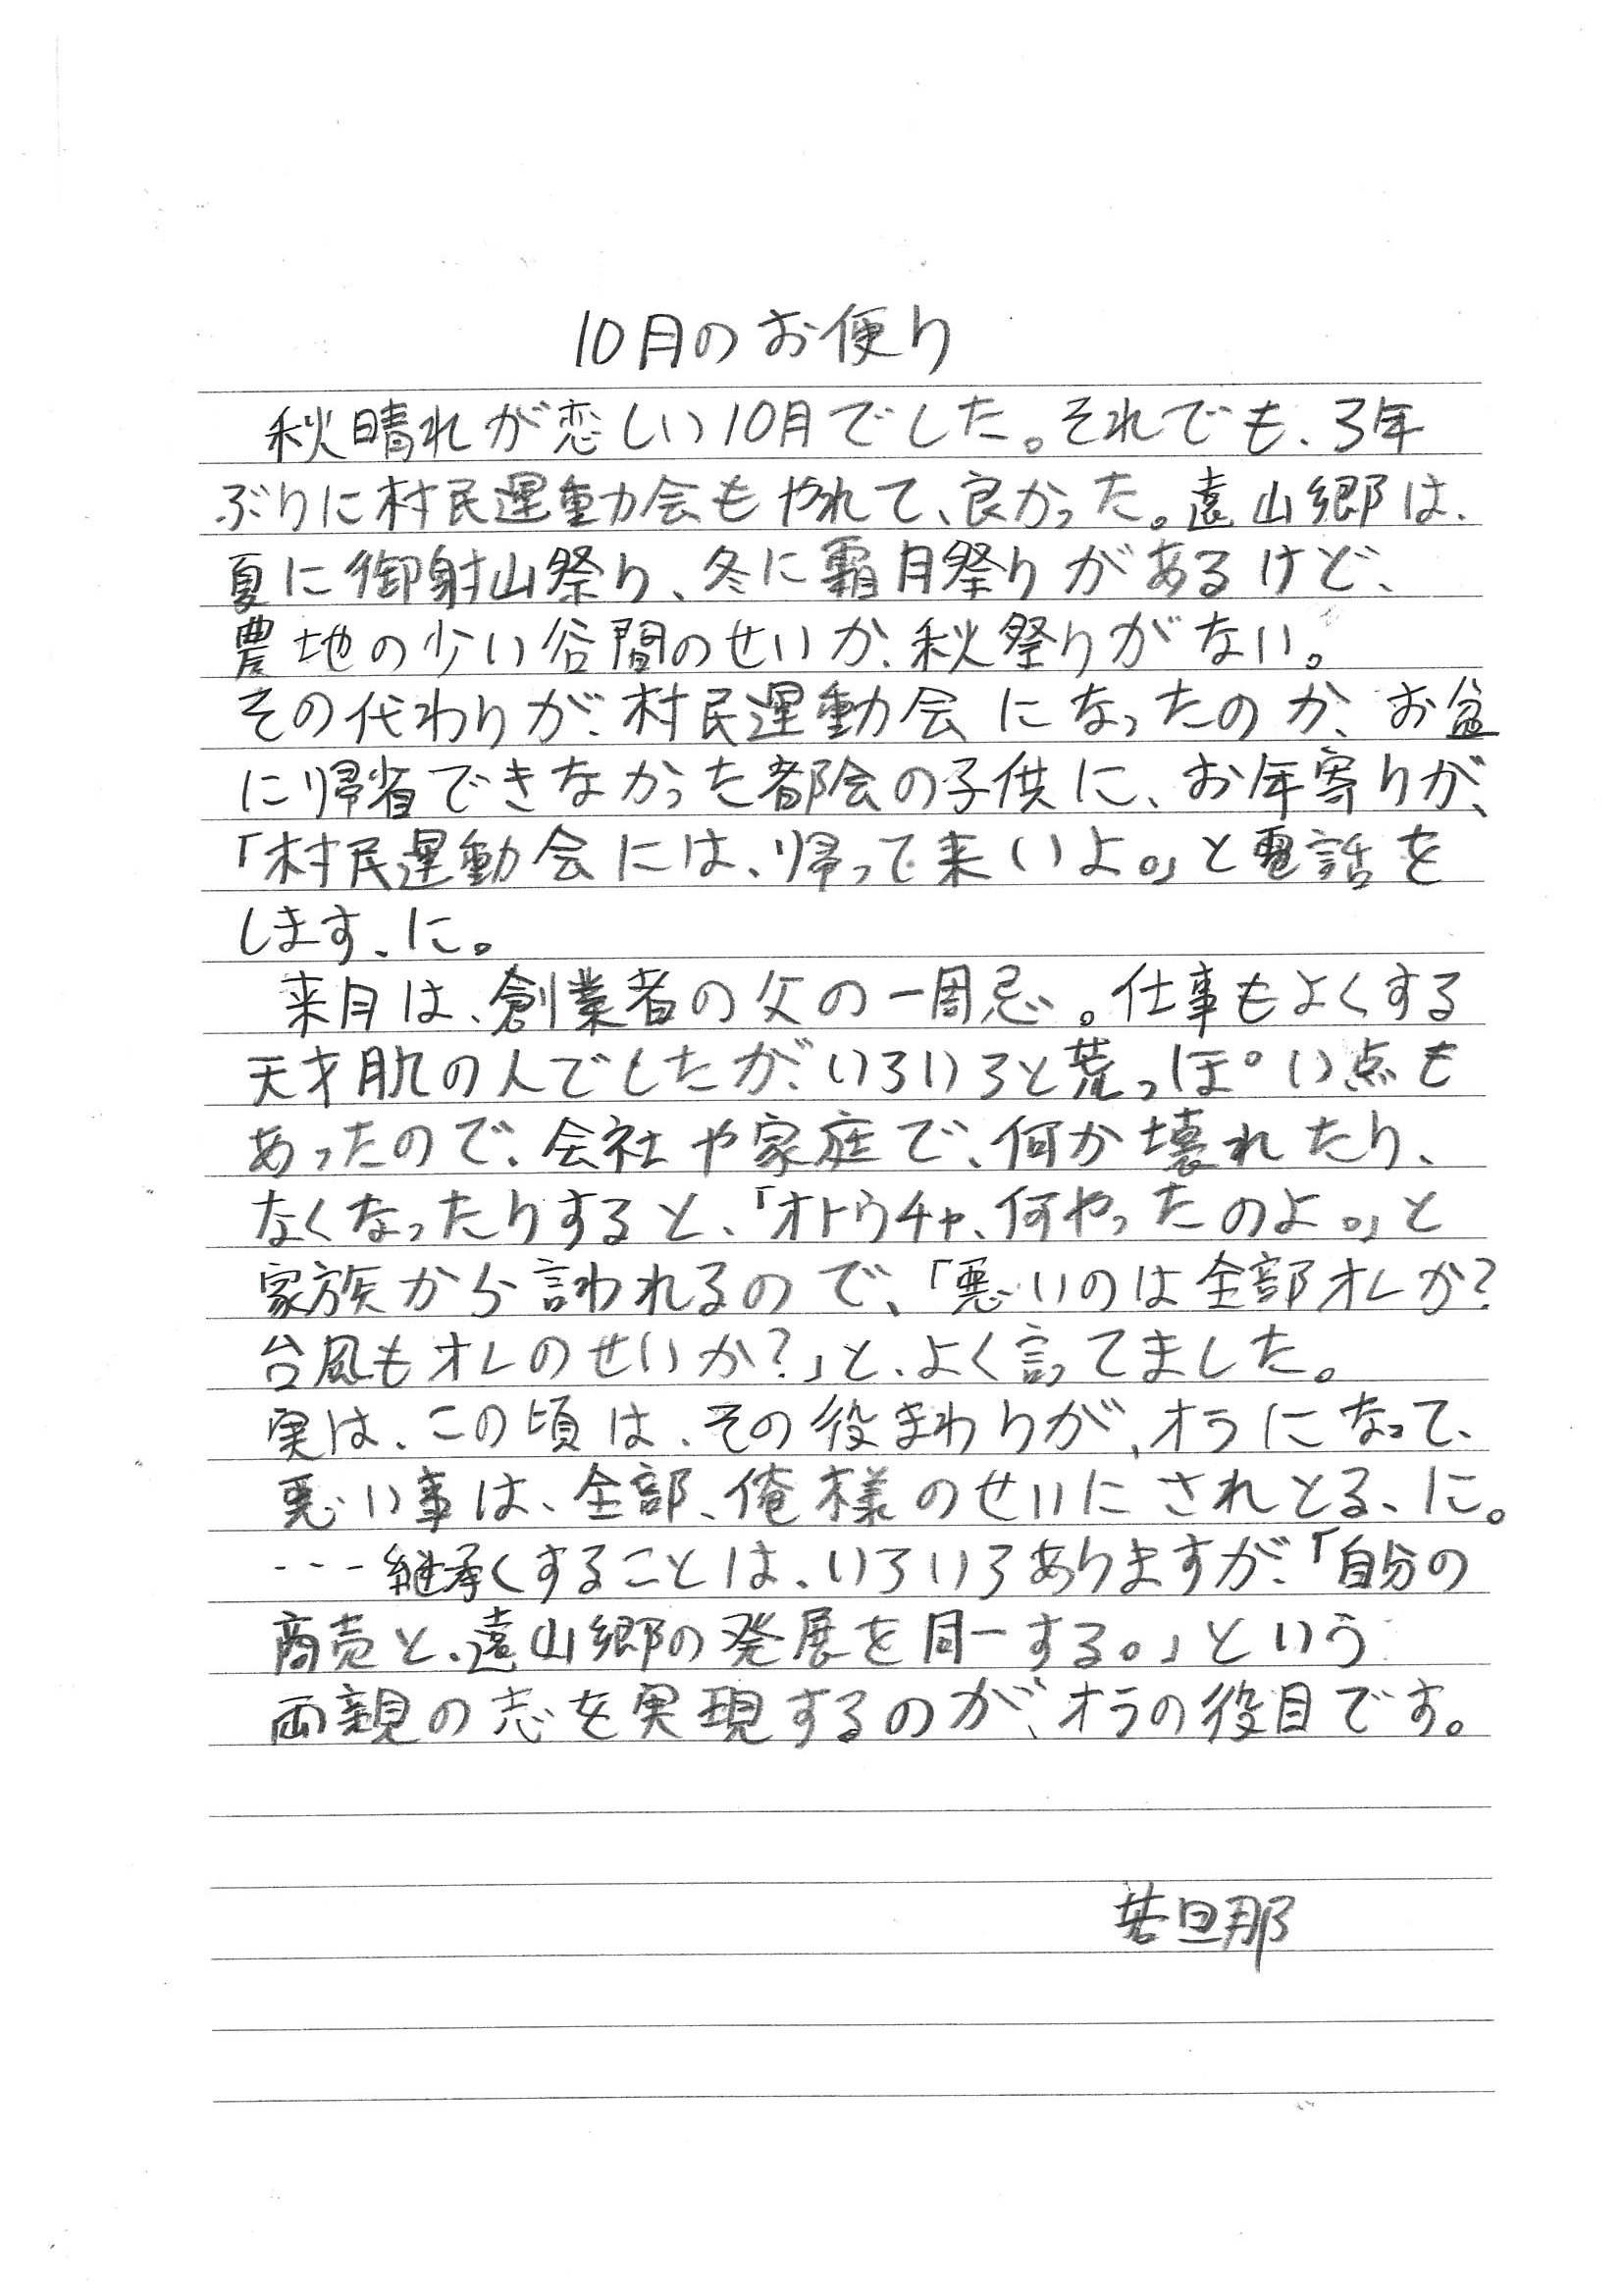 10月のお便り
秋晴れが恋しい10月でした。それでも、3年
ぶりに村民運動会もやれて、良かった。遠山郷は、
夏に御射山祭り、冬に霜月祭りがあるけど、
農地の少い谷間のせいか、秋祭りがない。
その代わりが、村民運動会になったのか、お盆
に帰省できなかった都会の子供に、お年寄りが、
「村民運動会には、帰って来いよ。」と電話を
します、に。
来月は、創業者の父の一周忌。仕事もよくする
天才肌の人でしたが、いろいろと荒っぽい点も
あったので、会社や家庭で、何か壊れたり、
なくなったりすると、「オトウチャ、何やったのよ。」と
家族から言われるので、「悪いのは全部オレか?
台風もオレのせいか?」と、よく言ってました。
実は、この頃は、その役まわりが、オラになって、
悪い事は、全部、俺様のせいにされとる、に。
・・・継承くすることは、いろいろありますが、「自分の
商売と、遠山郷の発展を同一する。」という
両親の志を実現するのが、オラの役目です。
若旦那